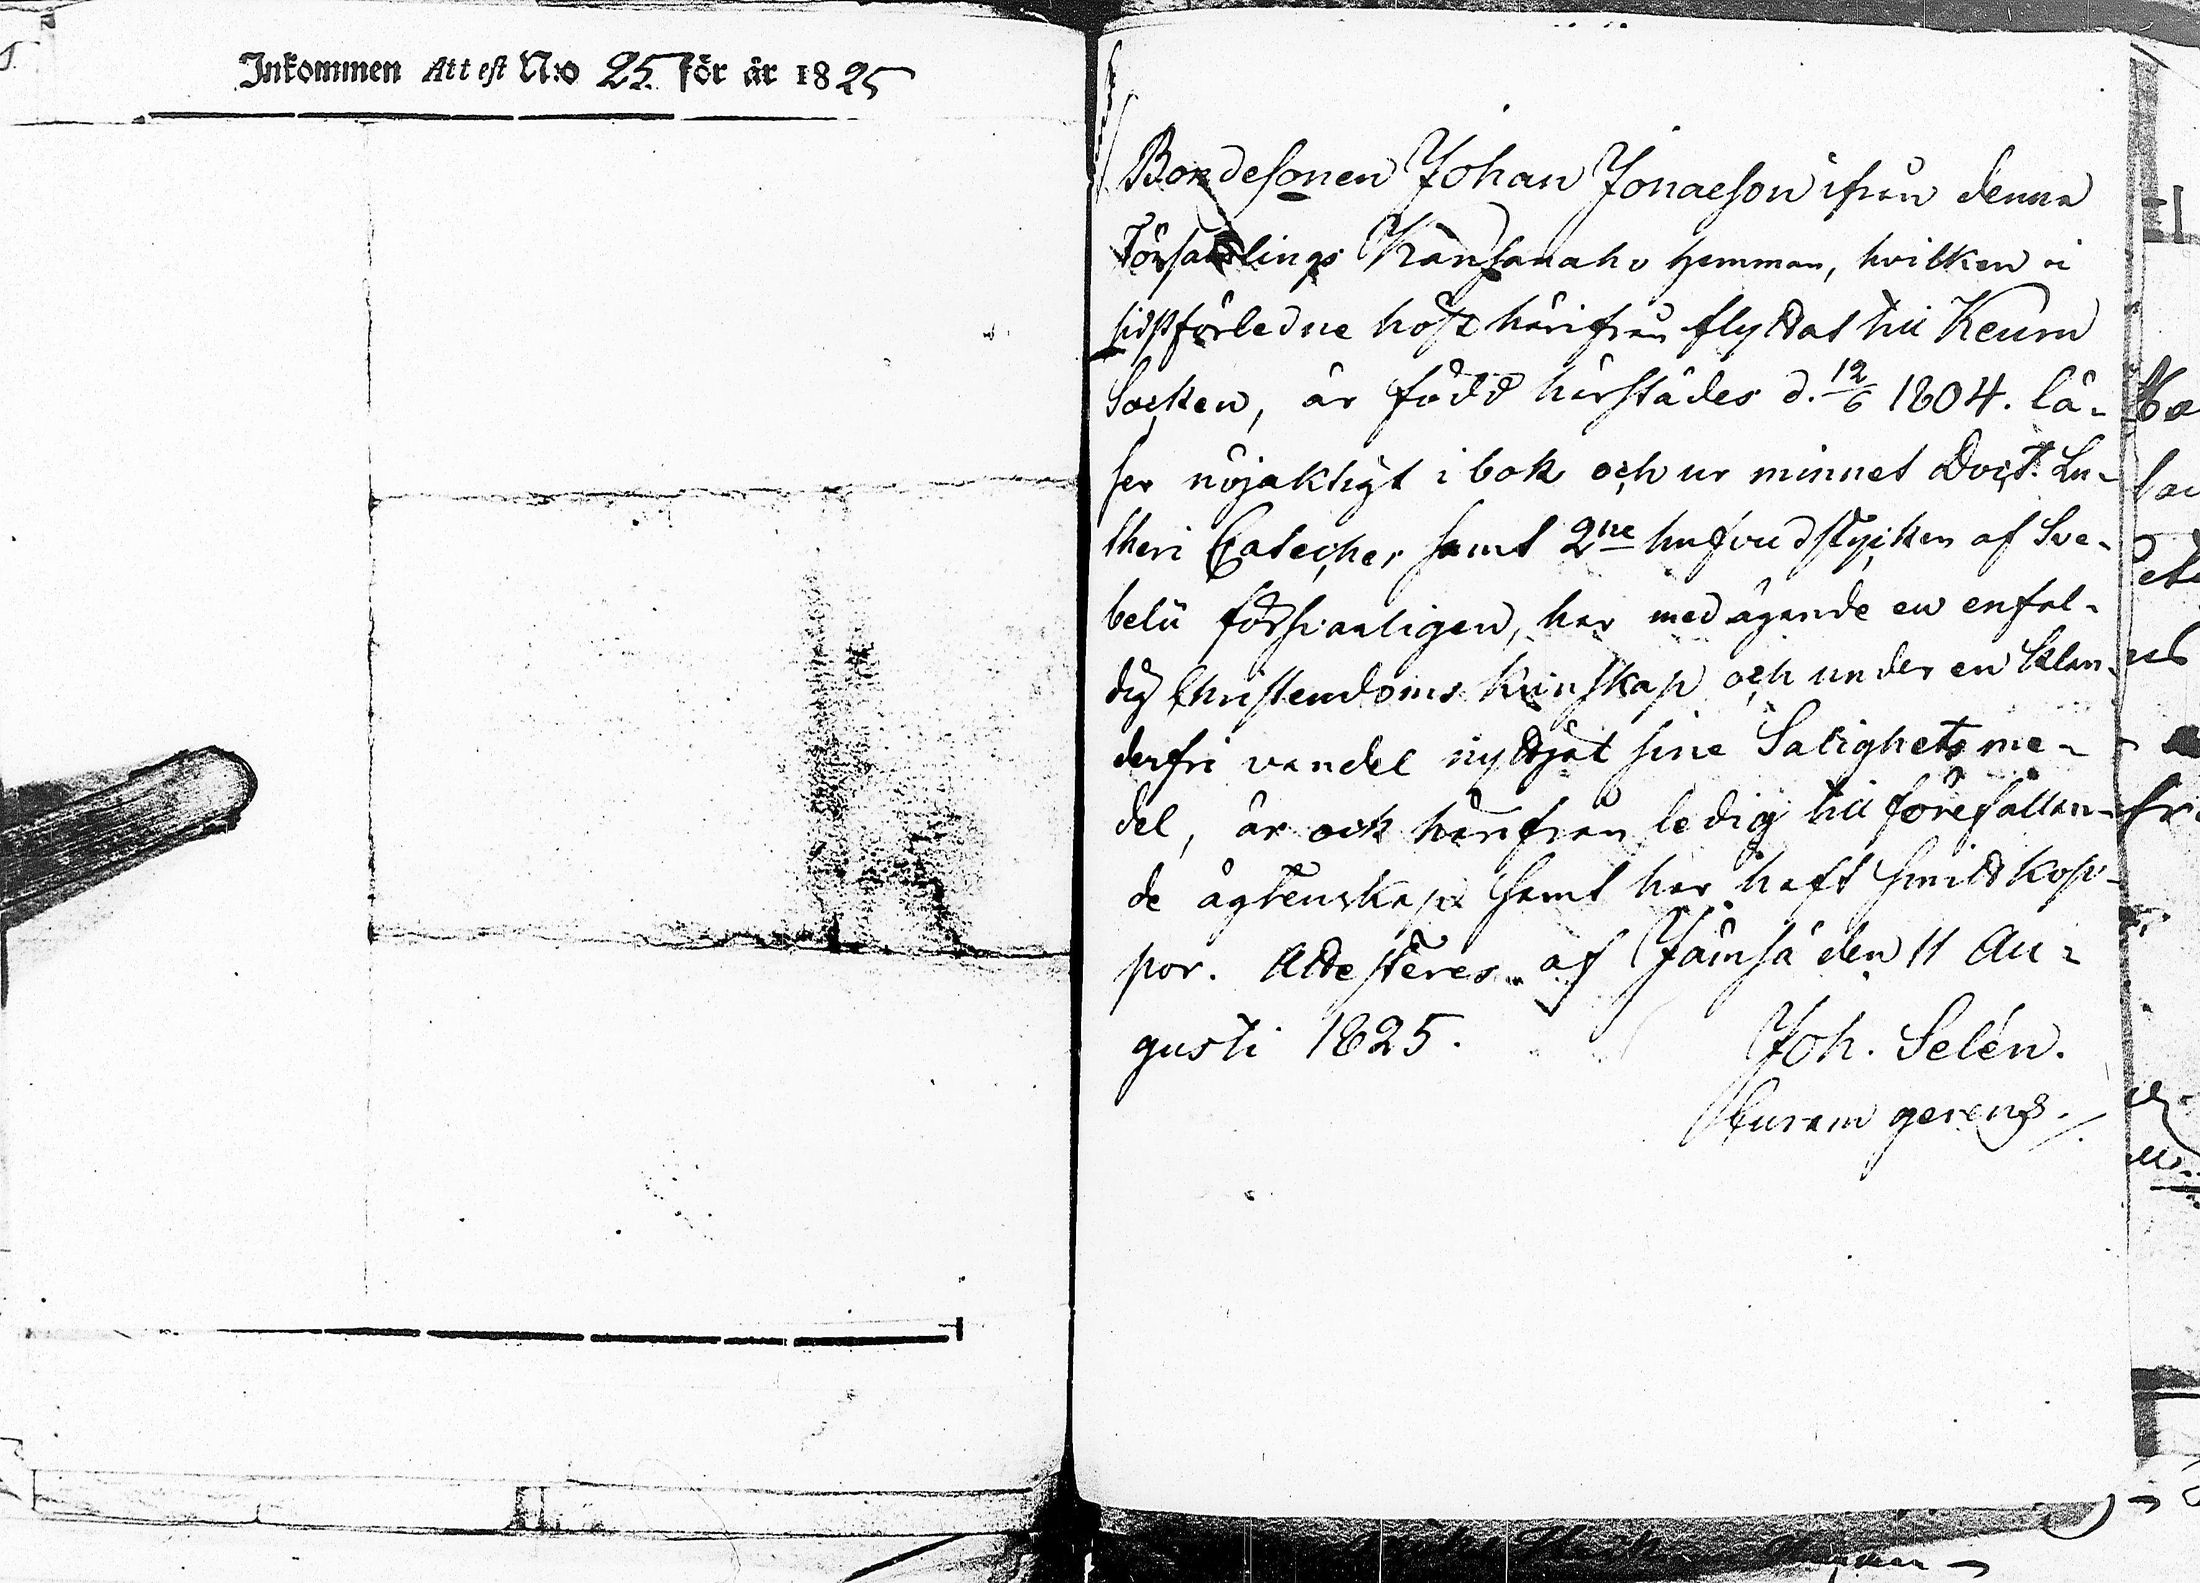 Inkommen Attest N:o 25. för år 1825
Bondesonen Johan Jonaeson ifrån denna
Församlings Kansanaho Hemman, hvilken i
sidstförledne höst härifrån flyttat till Keuru
Socken, är född härstädes d. 12/6 1804. lä-
ser nöjaktigt i bok och ur minnet Doct. Lu-
theri Cateches samt 2ne hufvudstycken af Sve-
belii försvarligen, har med ägande en enfal-
dig Christendoms kunskap och under en klan-
derfri vandel nyttjat sine Salighets me-
del, är ock härifrån ledig till förefallan-
de ägtenskap samt har haft Smittkop-
por. Attesteres af Jämsä den 11 Au-
gusti 1825.
Joh. Selén.
Curam gerens.